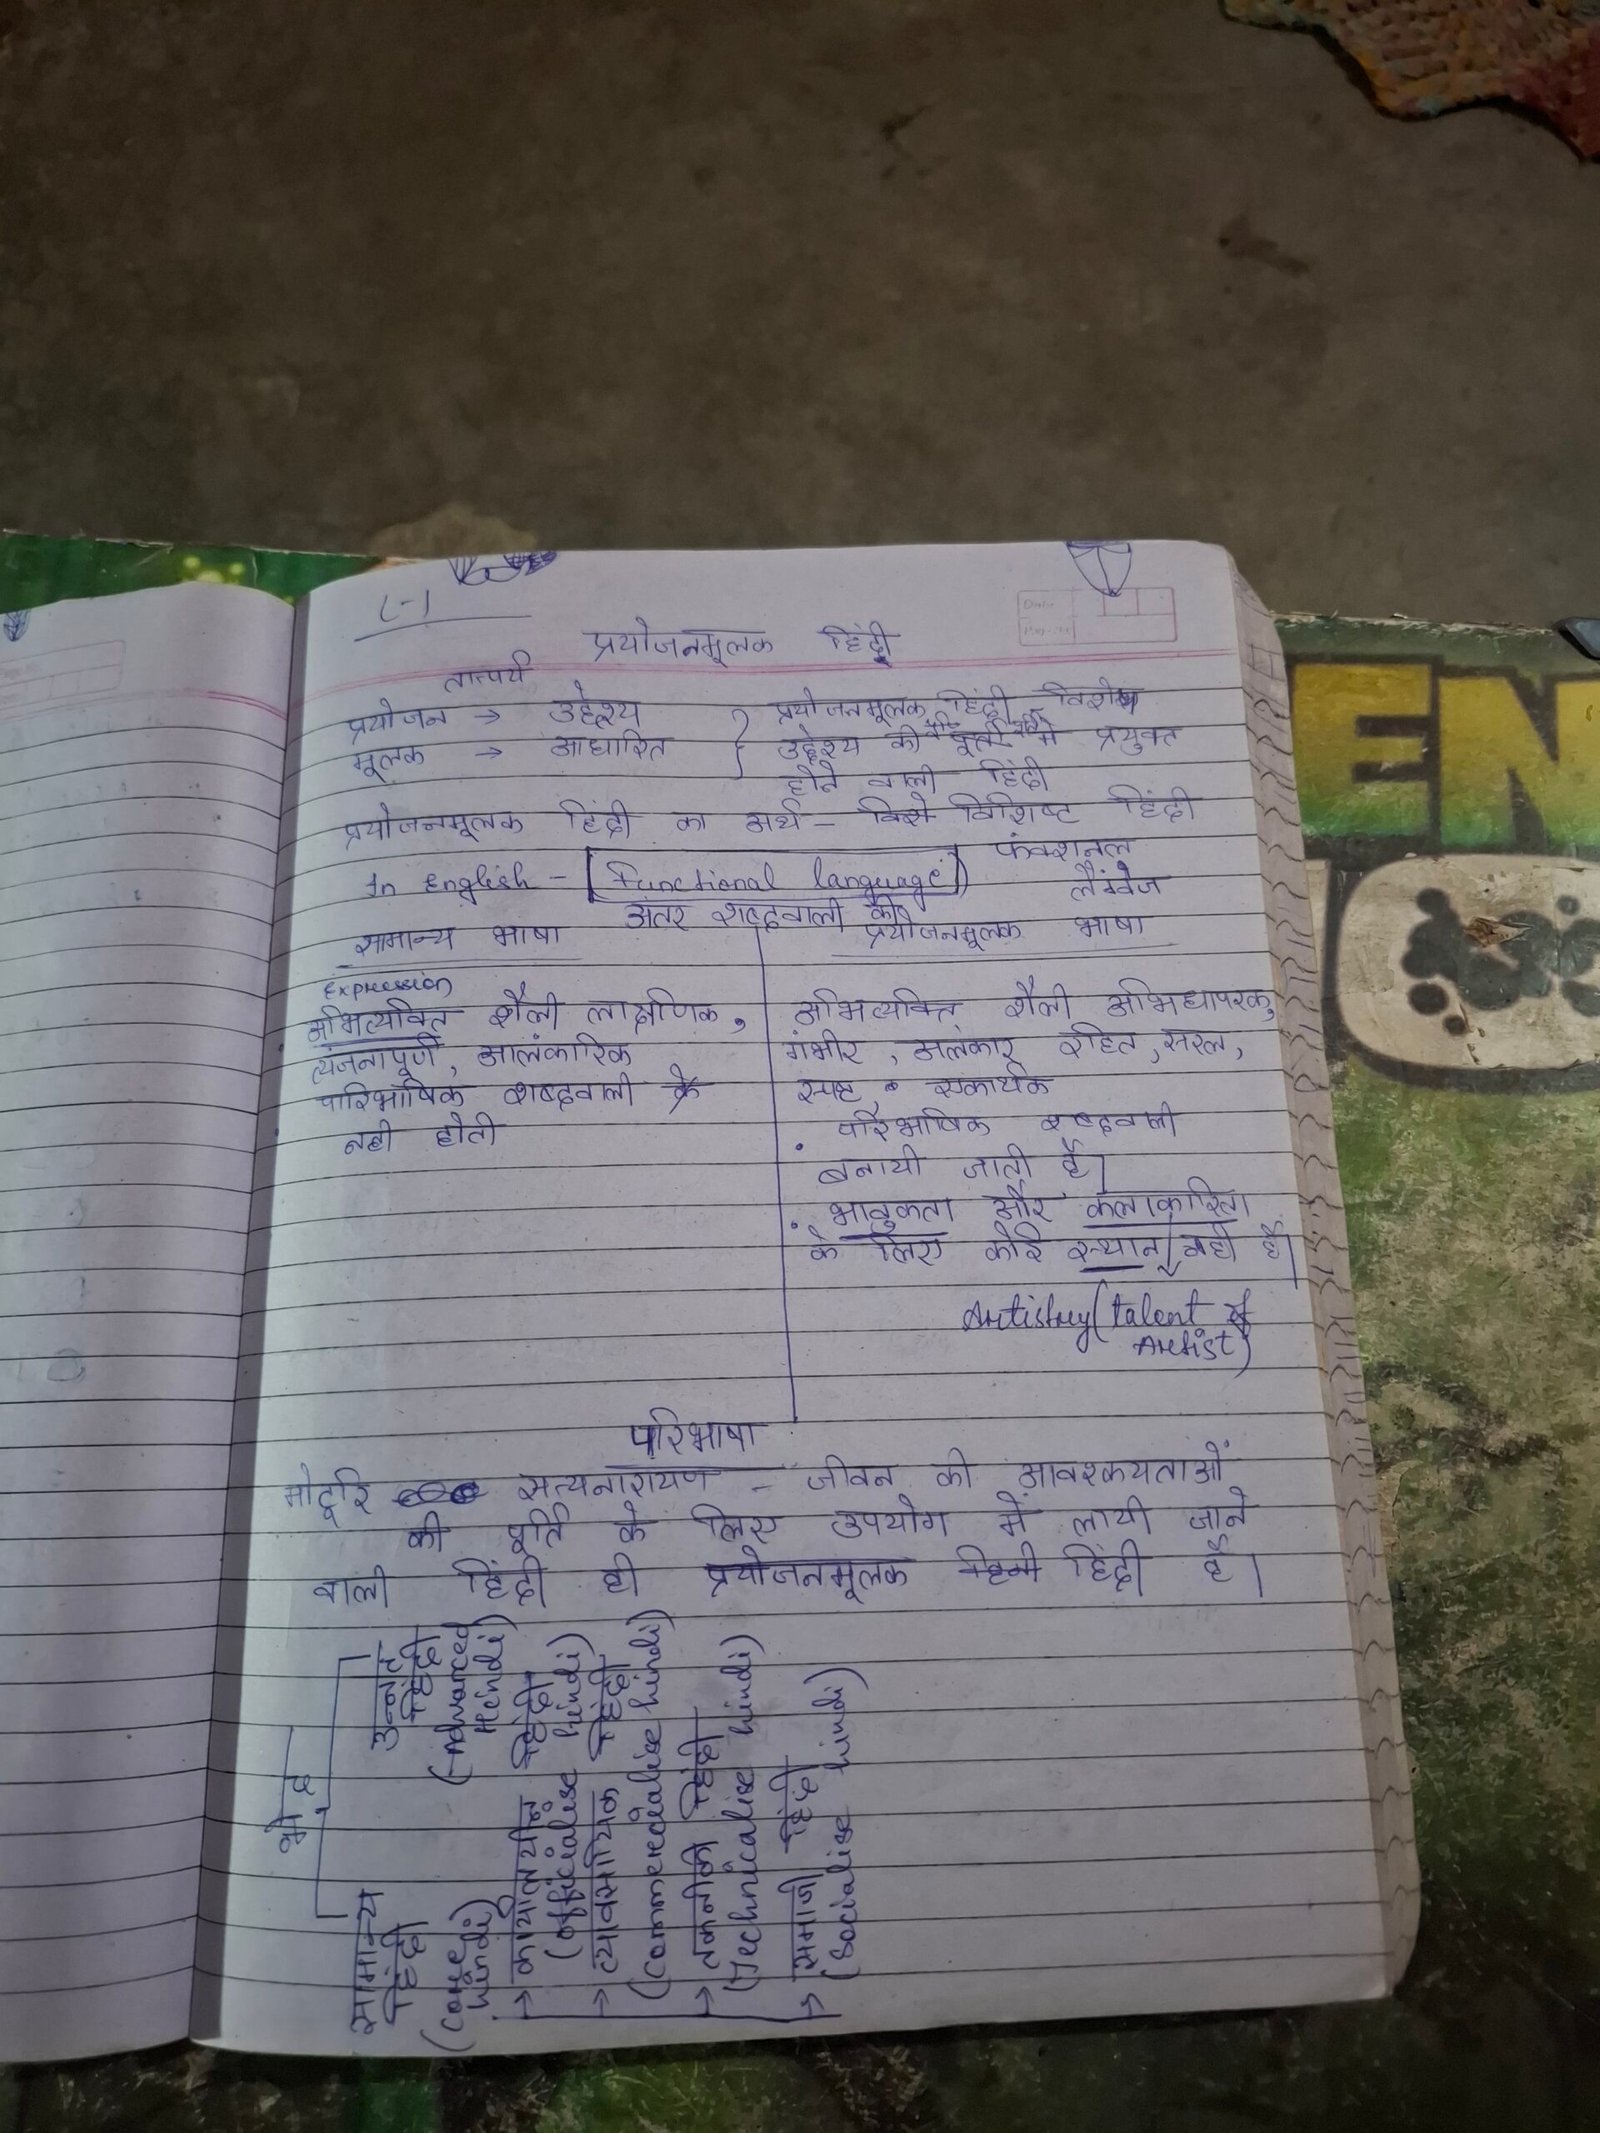 L-1
Date
प्रयोजनमूलक हिंदी
तात्पर्य
प्रयोजन → उद्देश्य
मूलक → आधारित
प्रयोजनमूलक हिंदी - विशेष
उद्देश्य की पूर्ती में प्रयुक्त
होने वाली हिंदी
प्रयोजनमूलक हिंदी का अर्थ - विशिष्ट हिंदी
In English - [Functional language] फंक्शनल
लैंग्वेज
अंतर शब्दवाली की
सामान्य भाषा
Expression
अभिव्यक्ति शैली लाक्षणिक,
व्यंजनापूर्ण, आलंकारिक
पारिभाषिक शब्दवाली
नही होती
प्रयोजनमूलक भाषा
अभिव्यक्ति शैली अभिधापरक,
गंभीर, अलंकार रहित, सरल,
स्पष्ट, एकार्थक
• परिभाषिक शब्दवाली
बनायी जाती है।
• भावुकता और कलाकारिता
के लिए कोई स्थान नही है।
Artistry (talent of
Artist)
परिभाषा
मोटूरि सत्यनारायण - जीवन की आवश्कयताओं
की पूर्ति के लिए उपयोग में लायी जाने
वाली हिंदी ही प्रयोजनमूलक हिंदी है।
भेद
सामान्य
हिंदी
(core
hindi)
उन्नत
हिंदी
(Advanced
Hindi)
→ कार्यालयीन हिंदी
(officialise hindi)
→ व्यवसायिक हिंदी
(commercialise hindi)
→ तकनीकी हिंदी
(Technicalise hindi)
→ समाजी हिंदी
(Socialise hindi)
EN